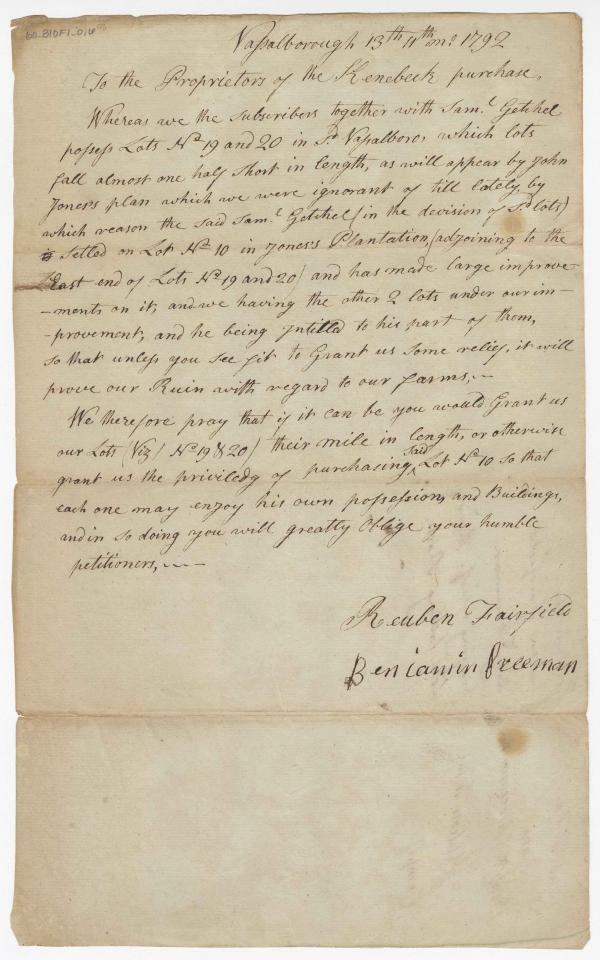 60-810F1-016
Vassalborough 13th 11th mo 1792
To the Proprietors of the Kenebeck purchase,
Whereas we the subscribers together with Saml Getchel
possess Lots No 19 and 20 in Sd Vassalboro, which lots
fall almost one half short in length, as will appear by John
Jones's plan which we were ignorant of till lately, by
which reason the said Saml Getchel (in the devision of Sd lots)
is Setled on Lot No 10 in Jones's Plantation, (adjoining to the
East end of Lots No 19 and 20) and has made large improve-
-ments on it, and we having the other 2 lots under our im-
-provement, and he being Intitled to his part of them,
so that unless you see fit to Grant us some relief, it will
prove our Ruin with regard to our farms.
We therefore pray that if it can be you would Grant us
our Lots (Viz) No 19 & 20) their mile in length, or otherwise
grant us the priviledg of purchasing said Lot No 10 so that
each one may enjoy his own possession, and Buildings,
and in so doing you will greatly Oblige your humble
petitioners,
Reuben Fairfield
Benjamin Freeman